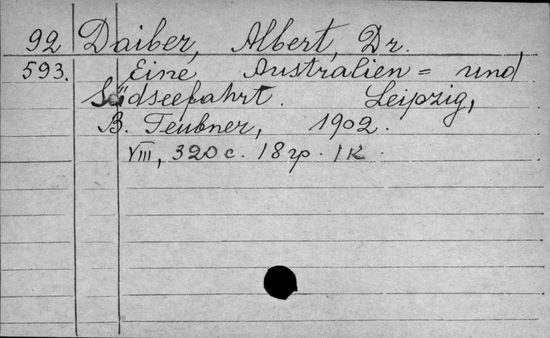 92 Daiber, Albert, Dr.
593. Eine Australien= und
Südseefahrt. Leipzig,
B. Teubner, 1902.
VIII, 320 c. 18 гр. 1 к.